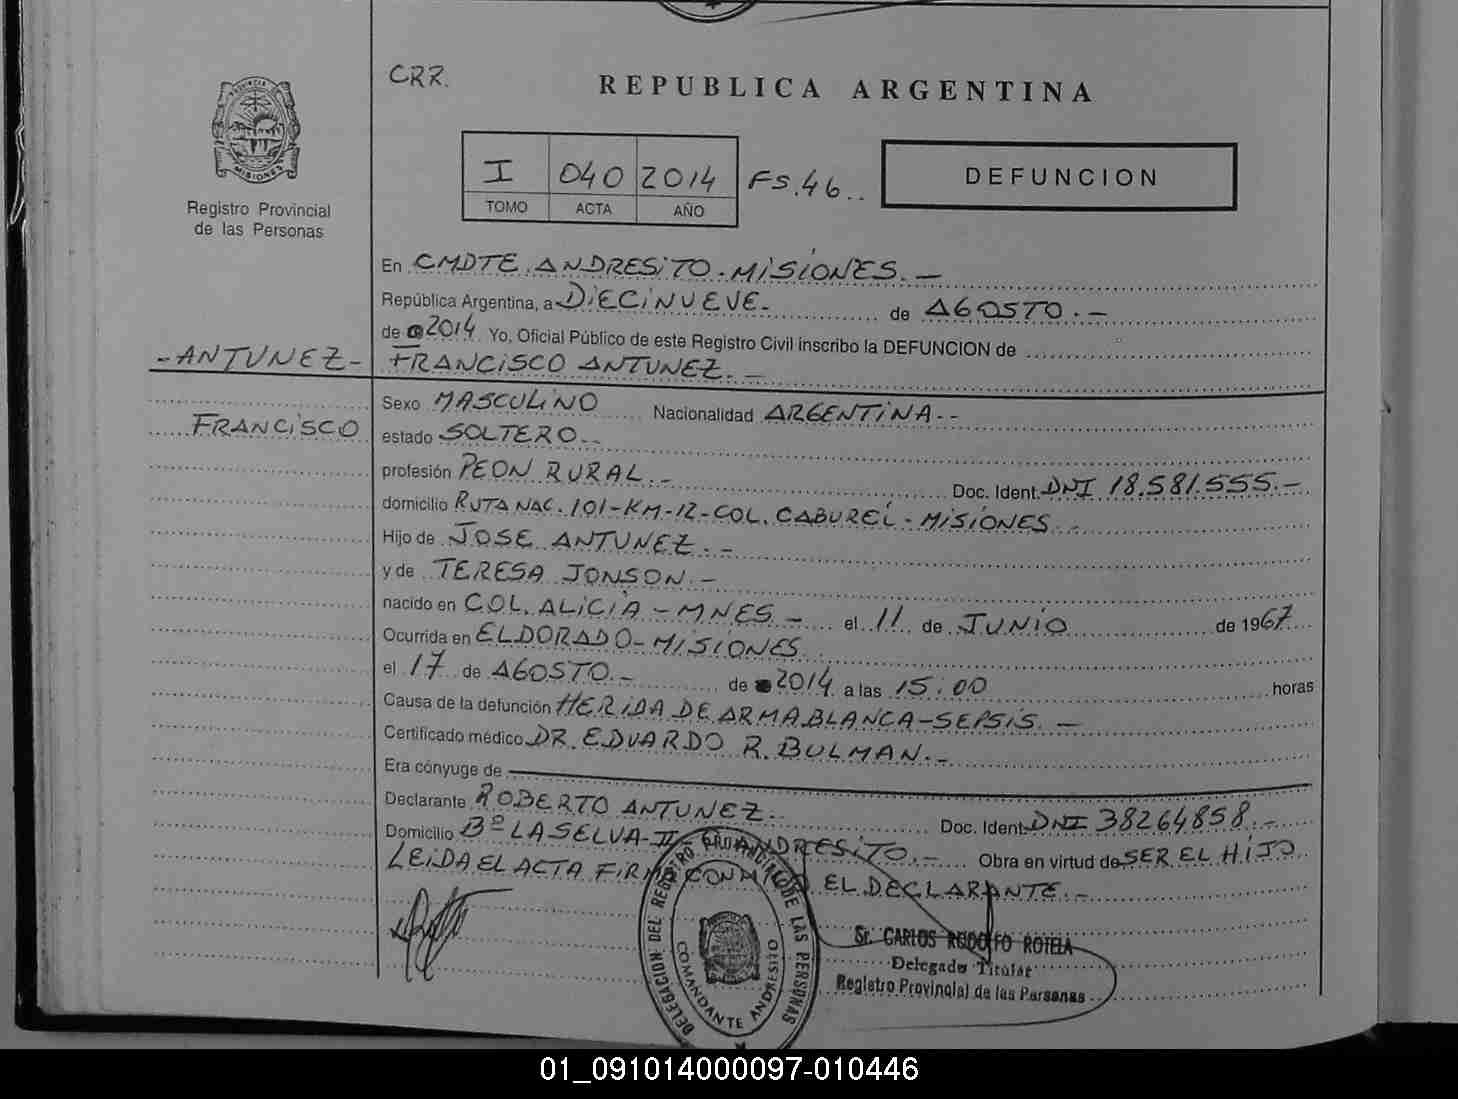 CRR.
REPUBLICA ARGENTINA
PROVINCIA DE
MISIONES
Registro Provincial
de las Personas
I 040 2014 FS.46..
TOMO ACTA AÑO
DEFUNCION
En CMDTE ANDRESITO - MISIONES. -
República Argentina, a DIECINUEVE- de AGOSTO. -
de 2014 Yo, Oficial Público de este Registro Civil inscribo la DEFUNCION de
- ANTUNEZ - FRANCISCO ANTUNEZ. -
Sexo MASCULINO Nacionalidad ARGENTINA. -
FRANCISCO estado SOLTERO..
profesión PEON RURAL. - Doc. Ident. DNI 18.581.555. -
domicilio RUTA NAC. 101-KM-12-COL. CABUREÍ - MISIONES. -
Hijo de JOSE ANTUNEZ. -
y de TERESA JONSON. -
nacido en COL. ALICIA - MNES - el 11 de JUNIO de 1967
Ocurrida en ELDORADO - MISIONES
el 17 de AGOSTO. - de 2014 a las 15:00 horas
Causa de la defunción HERIDA DE ARMA BLANCA - SEPSIS. -
Certificado médico DR. EDUARDO R. BULMAN. -
Era cónyuge de
Declarante ROBERTO ANTUNEZ. Doc. Ident. DNI 38264858. -
Domicilio Bº LA SELVA - II ANDRESITO. - Obra en virtud de SER EL HIJO
LEIDA EL ACTA FIRMA CONMIGO EL DECLARANTE. -
DELEGACION DEL REGISTRO PROVINCIAL DE LAS PERSONAS
COMANDANTE ANDRESITO
Sr. CARLOS RODOLFO ROTELA
Delegado Titular
Registro Provincial de las Personas
01_091014000097-010446